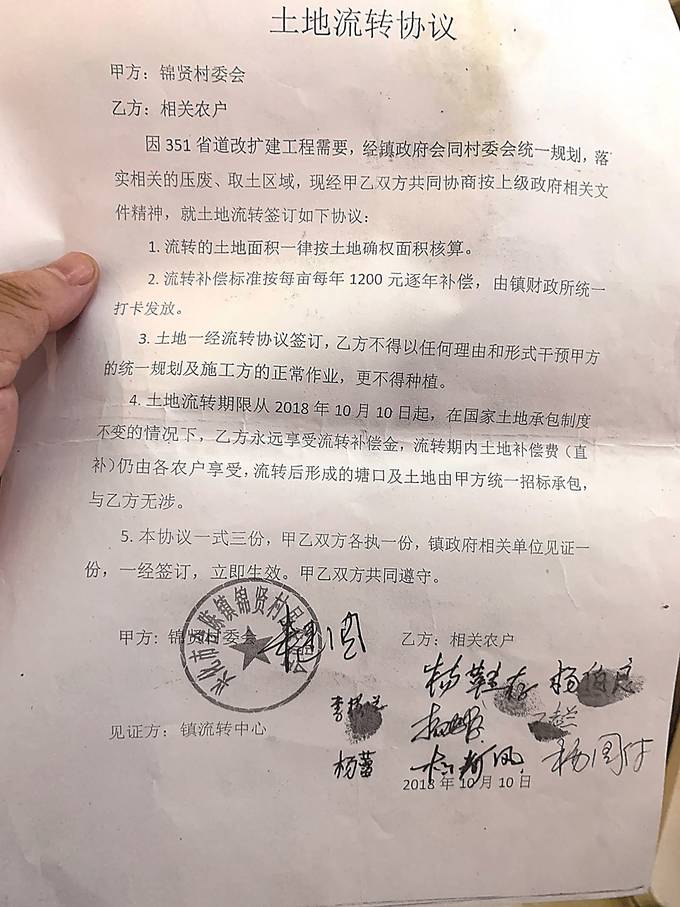 土地流转协议
甲方：锦贤村委会
乙方：相关农户
因 351 省道改扩建工程需要，经镇政府会同村委会统一规划，落
实相关的压废、取土区域，现经甲乙双方共同协商按上级政府相关文
件精神，就土地流转签订如下协议：
1. 流转的土地面积一律按土地确权面积核算。
2. 流转补偿标准按每亩每年 1200 元逐年补偿，由镇财政所统一
打卡发放。
3. 土地一经流转协议签订，乙方不得以任何理由和形式干预甲方
的统一规划及施工方的正常作业，更不得种植。
4. 土地流转期限从 2018 年 10 月 10 日起，在国家土地承包制度
不变的情况下，乙方永远享受流转补偿金，流转期内土地补偿费（直
补）仍由各农户享受，流转后形成的塘口及土地由甲方统一招标承包，
与乙方无涉。
5. 本协议一式三份，甲乙双方各执一份，镇政府相关单位见证一
份，一经签订，立即生效。甲乙双方共同遵守。
甲方：锦贤村委会
乙方：相关农户
见证方：镇流转中心
杨蕾
2018 年 10 月 10 日